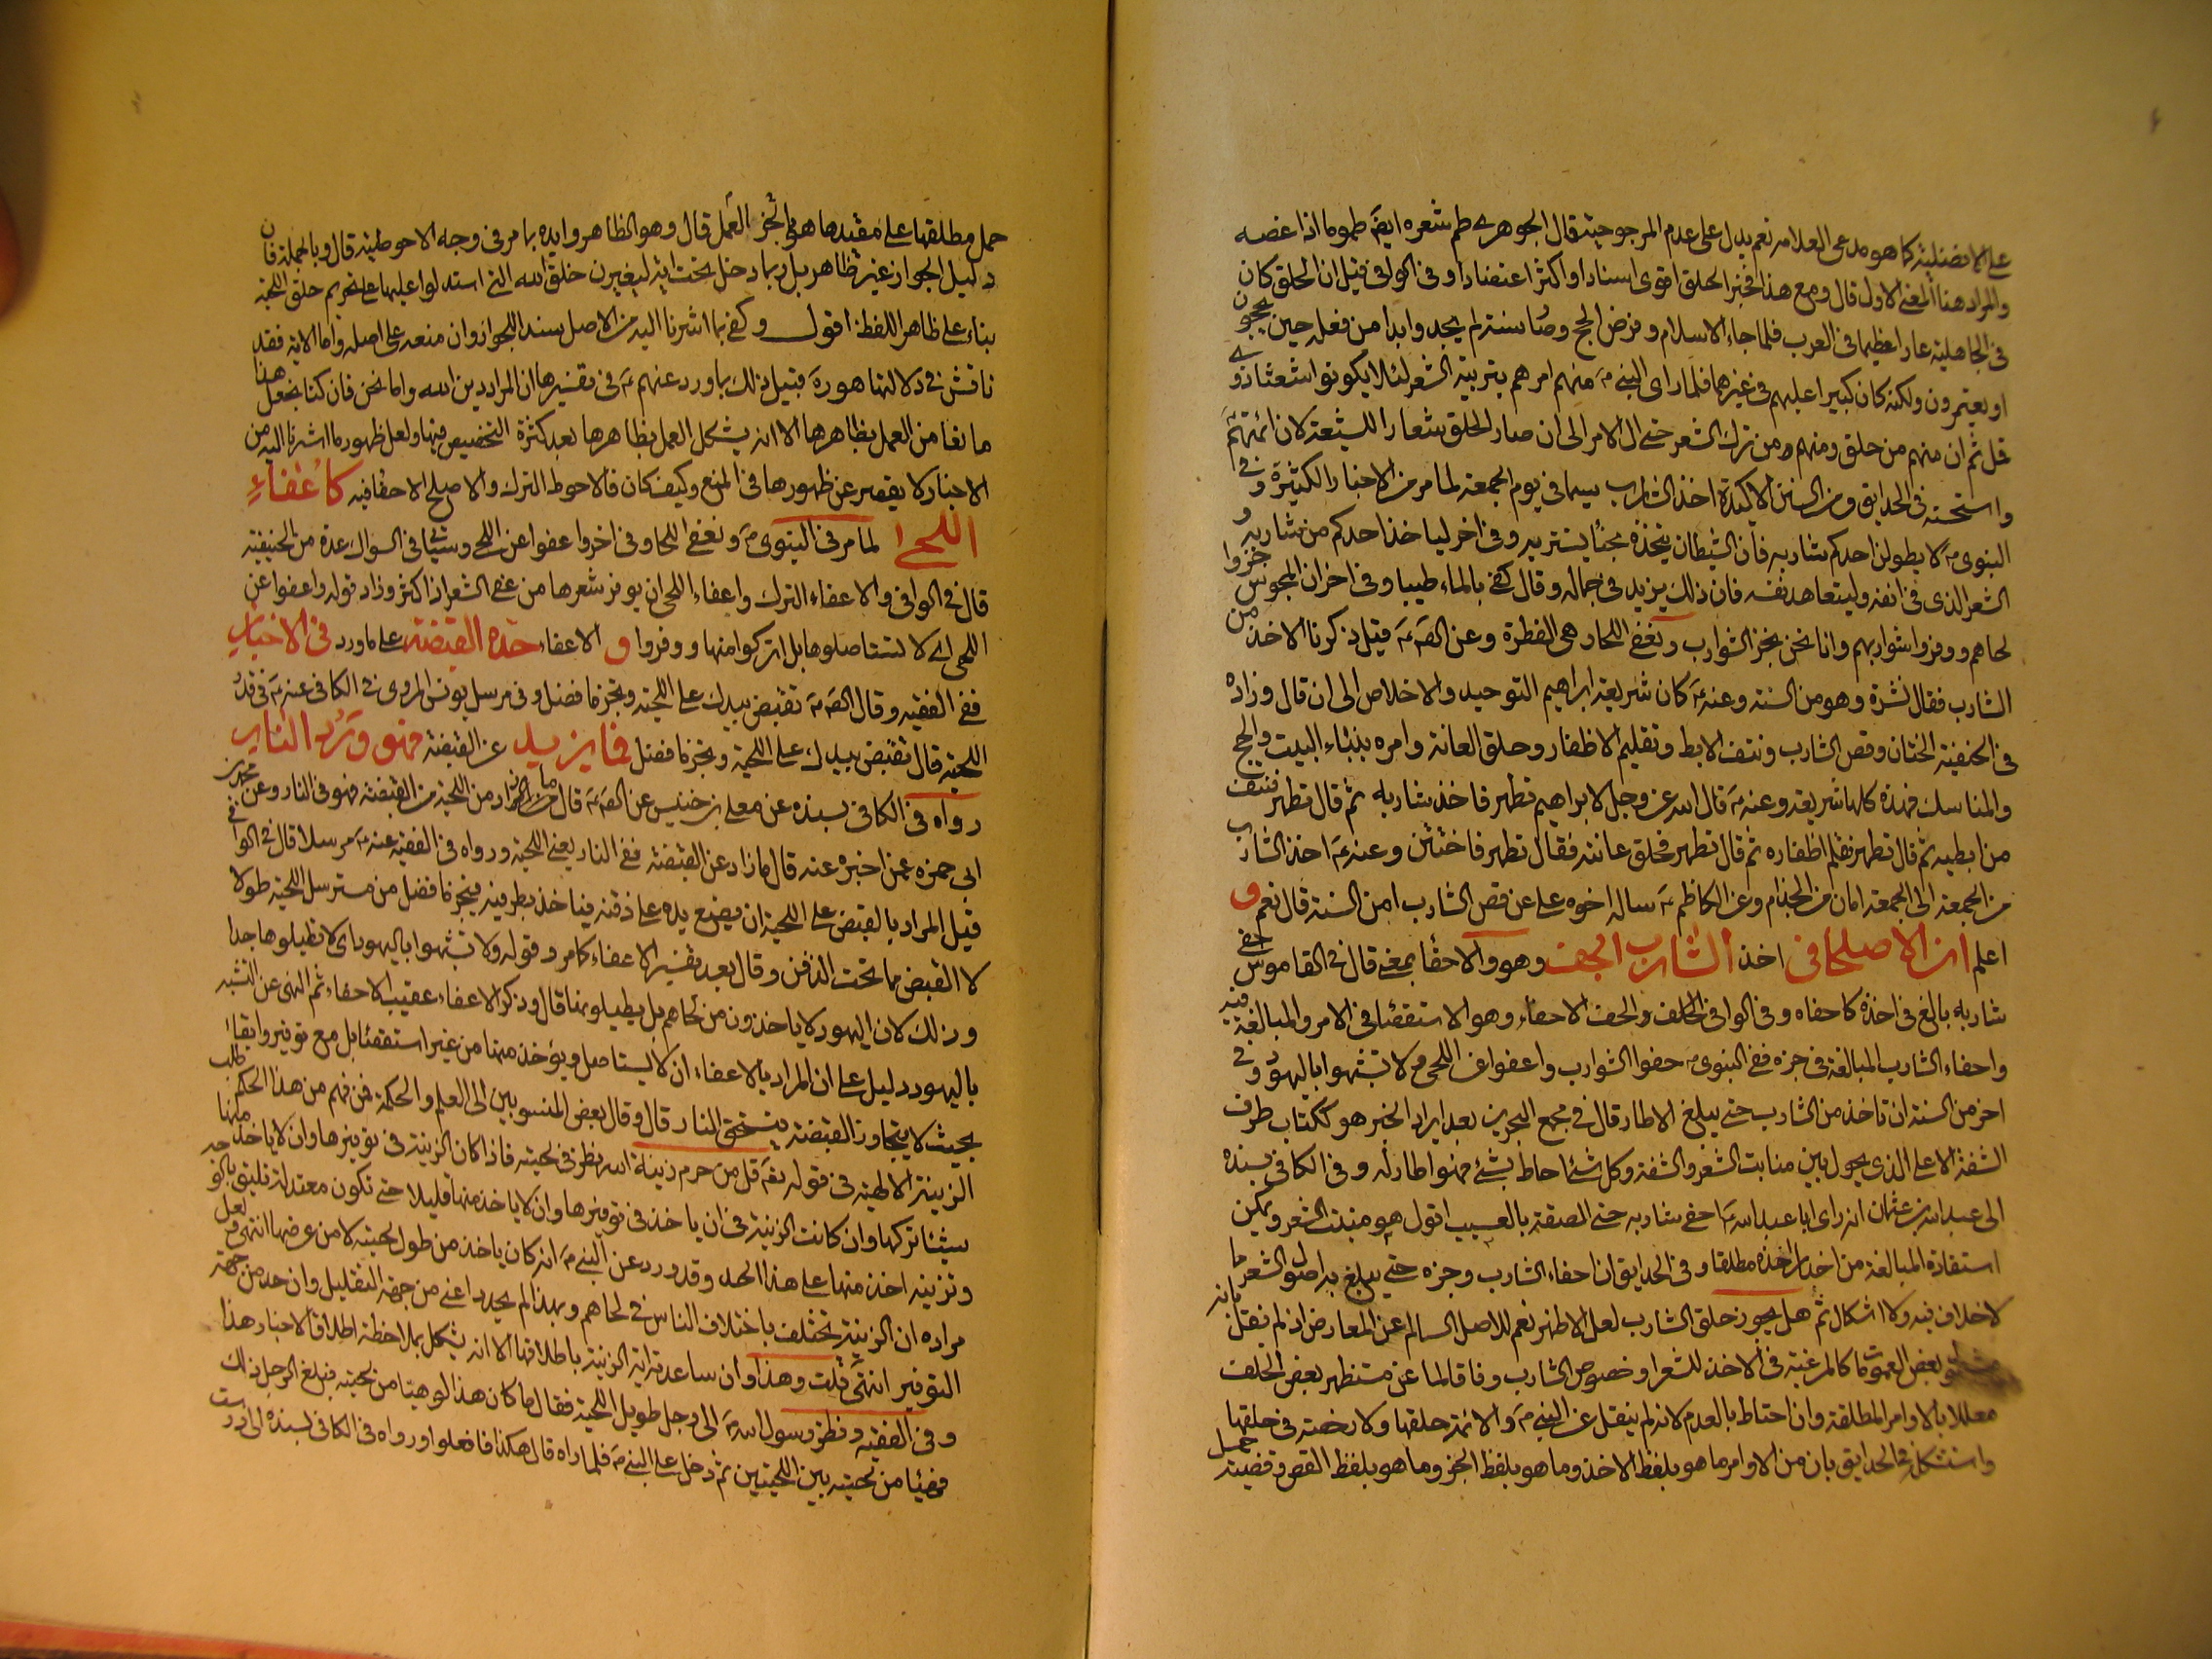 على الافضلية كما هو مدعى العلامه نعم يدل على عدم المرجوحية قال الجوهرى طم شعره ايضَ طموما اذا غصه
والمراد هنا المعنى الاول قال ومع هذا فخبر الحلق اقوى اسنادا واكثر اعتضادا وفى الوافى قيل ان الحلق كان
فى الجاهلية عارا عظيما فى العرب فلما جاء الاسلام وفرض الحج وصار سنة لم يجدوا بدا من فعله حين يحجون
او يعتمرون ولكنه كان كبيرا عليهم فى غيرهما فلما راى النبى صَ منهم امرهم بتربية الشعر لئلا يكونوا شعثا ذوى
قمل ثم ان منهم من حلق ومنهم من ترك الشعر حتى ال الامر الى ان صار الحلق شعارا للشيعة لان ائمتهم
واستحسنه فى الحدايق ومن السنن الاكيدة اخذ الشارب سيما فى يوم الجمعة لما مر من الاخبار الكثيرة وفى
النبوى صَ لا يطولن احدكم شاربه فان الشيطان يتخذه مجنا يستتر به وفى اخر لياخذ احدكم من شاربه و
الشعر الذى فى انفه وليتعاهد نفسه فان ذلك يزيد فى جماله وقال كفى بالماء طيبا وفى اخر ان المجوس جزوا
لحاهم ووفروا شواربهم وانا نحن نجز الشوارب ونعفى اللحا وهى الفطرة وعن الصَ عَ قيل ذكرنا الاخذ من
الشارب فقال نشرة وهو من السنه وعنه عَ كان شريعة ابراهيم التوحيد والاخلاص الى ان قال وزاده
فى الحنفية الختان وقص الشارب ونتف الابط وتقليم الاظفار وحلق العانة وامره ببناء البيت والحج
والمناسك فهذه كلها شريعته وعنه عَ قال الله عز وجل لابراهيم تطهر فاخذ شاربه ثم قال تطهر فنتف
من ابطيه ثم قال تطهر فقلم اظفاره ثم قال تطهر فحلق عانته فقال تطهر فاختتن وعنه عَ اخذ الشارب
من الجمعة الى الجمعة امان من الجذام وعن الكاظم عَ ساله اخوه على عن قص الشارب امن السنة قال نعم و
اعلم ان الاصلح فى اخذ الشارب الحف وهو والاحفا بمعنى قال فى القاموس احفى
شاربه بالغ فى اخذه كاحفاه وفى الوافى الحف والاحفاء وهو الاستقصا فى الامر والمبالغة فيه
واحفاء الشارب المبالغة فى جزه ففى النبوى صَ حفوا الشوارب واعفوا عن اللحى ولا تشبهوا باليهود وفى
اخر من السنة ان تاخذ من الشارب حتى يبلغ الاطار قال فى مجمع البحرين بعد ايراد الخبر هو ككتاب طرف
الشفة الاعلى الذى يحول بين منابت الشعر والشفة وكل شئ احاط بشئ فهو اطار له وفى الكافى بسنده
الى عبد الله بن عثمان انه راى ابا عبد الله عَ احفى شاربه حتى الصقه بالعسيب اقول هو منبت الشعر ويمكن
استفادة المبالغة من اخبار اخذه مطلقا وفى الحدايق ان احفاء الشارب وجزه حتى يبلغ به اصول الشعر مما
لا خلاف فيه ولا اشكال ثم هل يجوز حلق الشارب لعل الاظهر نعم للاصل السالم عن المعارض اذ لم نقل بانه
بعض العمومات كالمرغبة فى الاخذ للشعر وخصوص الشارب وفاقا لما عن مستظهر بعض الخلف
معللا بالاوامر المطلقة وان احتاط بالعدم لانه لم ينقل عن النبى صَ والائمة حلقها ولا رخصة فى حلقها
واستشكل فى الحدايق بان من الاوامر ما هو بلفظ الاخذ وما هو بلفظ الجز وما هو بلفظ القص وقضيته حمل
حمل مطلقها على مقيدها هو الجز العمل قال وهو الظاهر وايده بما مر فى وجه الاحوطية قال وبالجملة فان
دليل الجواز غير ظاهر بل ربما دخل تحت اية ليغيرن خلق الله التى استدلوا عليها على تحريم حلق اللحية
بناء على ظاهر اللفظ اقول وكفى بما اشرنا اليه من الاصل سندا للجواز وان منعه على اصله واما الاية فقد
ناقش فى دلالتها هو رهَ قبيل ذلك بما ورد عنهم عَ فى تفسيرها ان المراد دين الله واما نحن فان كنا نجعل هذا
مانعا من العمل بظاهرها الا انه يشكل العمل بظاهرها بعد كثرة التخصيص فيها ولعل ظهور ما اشرنا اليه من
الاخبار لا يقصر عن ظهورها فى المنع وكيف كان فالاحوط الترك والاصلح الاحفا فيه كاعفاء
اللحى لما مر فى النبوى صَ ونعفى اللحا وفى اخر واعفوا عن اللحى وسياتى فى السواك عده من الحنيفية
قال فى الوافى والاعفاء الترك واعفاء اللحى ان يوفر شعرها من عفى الشعر اذا كثر وزاد قوله واعفوا عن
اللحى اى لا تستاصلوها بل اتركوا منها ووفروا و الاعفاء حده القبضه على ما ورد فى الاخبار
ففى الفقيه وقال الصَ عَ تقبض بيدك على اللحية وتجز ما فضل وفى مرسل يونس المروى فى الكافى عنه عَ فى قدر
اللحية قال تقبض بيدك على اللحية وتجز ما فضل فما يزيد عن القبضة فهو ورد النار
رواه فى الكافى بسنده عن معلى بن خنيس عن الصَ عَ قال ما زاد من اللحية من القبضة فهو فى النار وعن محمد بن
ابى حمزه عمن اخبره عنه قال ما زاد عن القبضة ففى النار يعنى اللحية ورواه فى الفقيه عنه عَ مرسلا قال فى الوافى
قيل المراد بالقبض على اللحية ان يضع يده على ذقنه فياخذ بطرفيه فيجز ما فضل من مسترسل اللحية طولا
لا القبض مما تحت الذقن وقال بعد تفسير الاعفاء كما مر وقوله ولا تشبهوا باليهود اى لا تطيلوها جدا
وذلك لان اليهود لا ياخذون من لحاهم بل يطيلونها قال وذكر الاعفاء عقيب الاحفاء ثم النهى عن التشبه
باليهود دليل على ان المراد بالاعفاء ان لا يستاصل ويؤخذ منها من غير استقصاء بل مع توفير وابقاء
بحيث لا يتجاوز القبضة فيستحق النار قال وقال بعض المنسوبين الى العلم والحكمة من فهم من هذا الحكم طلب
الزينة الالهية فى قوله تعَ قل من حرم زينة الله نظر فى لحيته فاذا كان الزينة فى توفيرها وان لا ياخذ منها
شيئا تركها وان كانت الزينة فى ان ياخذ فى توفيرها وان لا ياخذ منها قليلا حتى تكون معتدلة تليق بالوجه
وتزينه اخذ منها على هذا الحد وقد ورد عن النبى صَ انه كان ياخذ من طول لحيته لا من عرضها انتهى ولعل
مراده ان الزينة تختلف باختلاف الناس فى لحاهم وبهذا لم يحدد اعنى من جهة التقليل وان حد من جهة
التوفير انتهى قلت وهذا وان ساعدته اية الزينة باطلاقها الا انه يشكل بملاحظة اطلاق الاخبار هذا
وفى الفقيه ونظر رسول الله صَ الى رجل طويل اللحية فقال ما كان هذا لو هيا من لحيته فبلغ الرجل ذلك
فهيا من لحيته بين اللحيتين ثم دخل على النبى صَ فلما راه قال هكذا فافعلوا ورواه فى الكافى بسنده الى